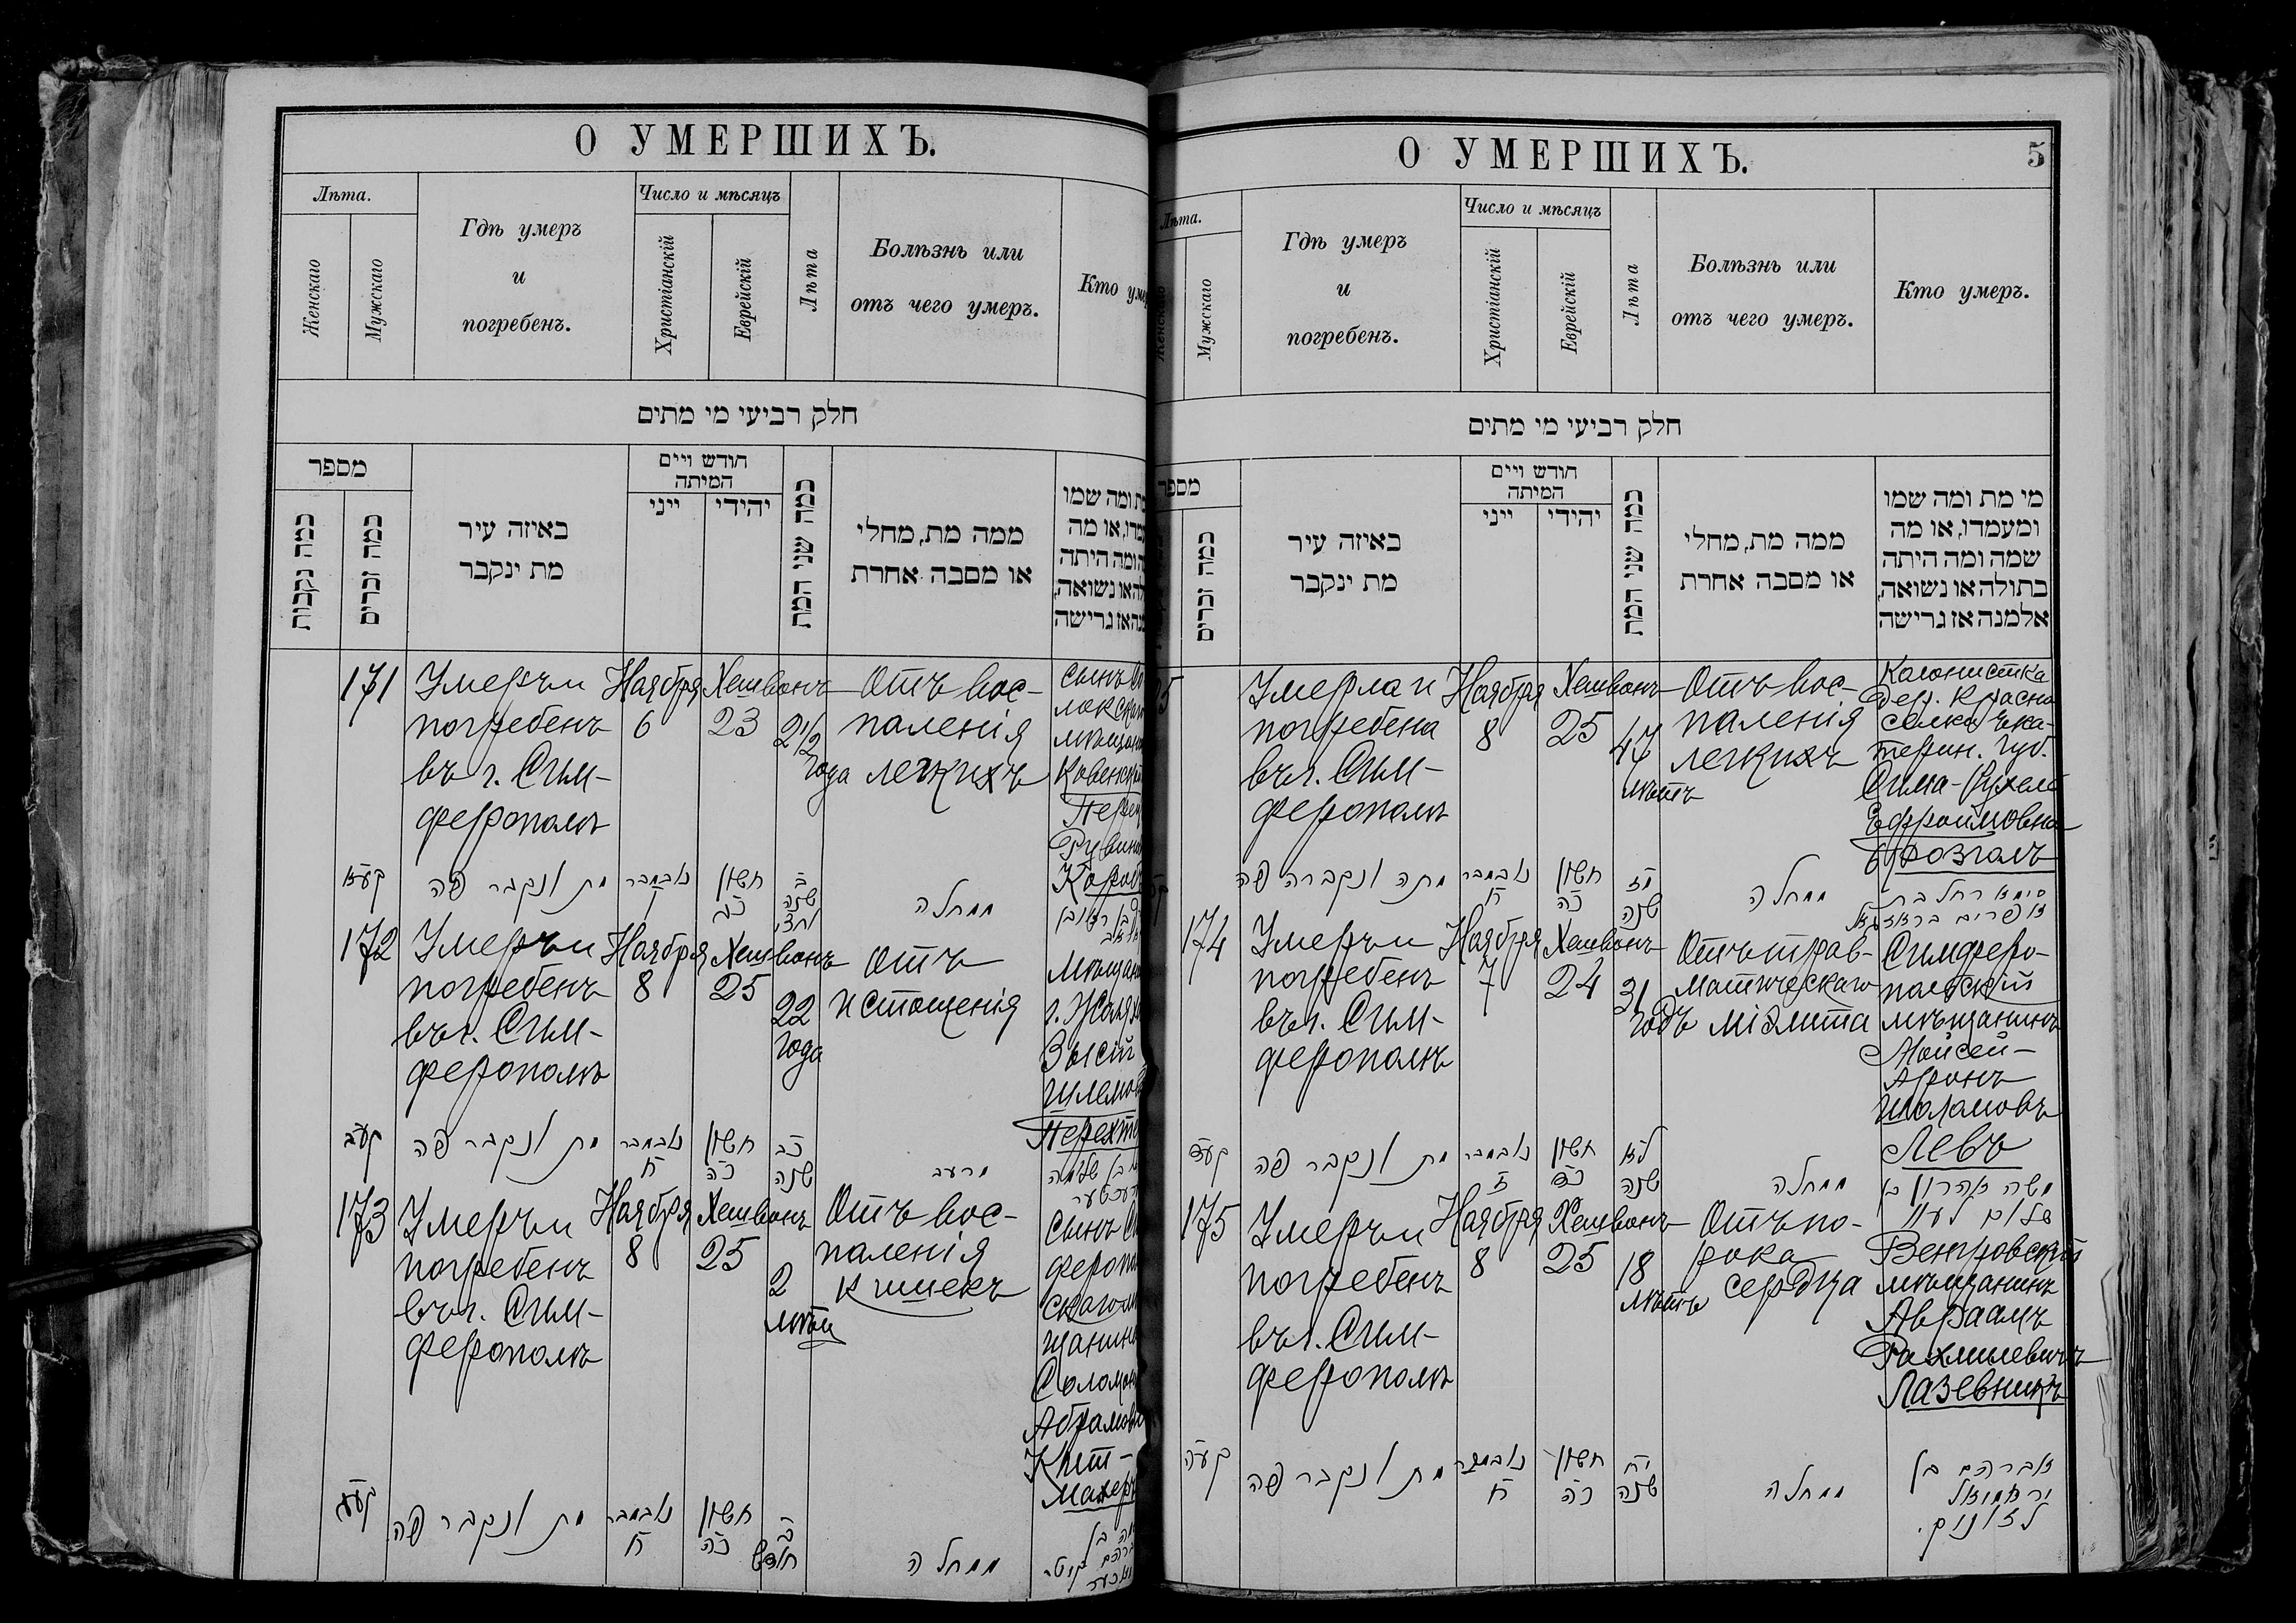 О УМЕРШИХЪ.
Лѣта.
Женскаго
Мужскаго
Гдѣ умеръ
и
погребенъ.
Число и мѣсяцъ
Христіанскій
Еврейскій
Лѣта
Болѣзнь или
отъ чего умеръ.
Кто уме
חלק רביעי מי מתים
מספר
כמה נקבות
כמה זכרים
באיזה עיר
מת ינקבר
חודש ויים
המיתה
ייני
יהודי
כמה שני המת
ממה מת, מחלי
או מסבה אחרת
מת ומה שמו
מדו, או מה
ה ומה היתה
לה או נשואה,
מנה אז גרישה
171
Умеръ и
погребенъ
въ г. Сим-
ферополѣ
Ноября
6
Хешвонъ
23
2 1/2
года
Отъ вос-
паленія
легкихъ
сынъ
мѣщан
Ковенск
Рувин
קעא
מת ונקבר פה
נאבמבר
ו
חשון
כג
ב
שנה
וחצי
ממחלה
בן ראובן
172
Умеръ и
погребенъ
въ г. Сим-
ферополѣ
Ноября
8
Хешвонъ
25
22
года
Отъ
истощенія
Мѣщан
Зысій
Шлемов
Перехте
קעב
מת ונקבר פה
נאבמבר
ח
חשון
כה
כב
שנה
מרעב
בן שלמה
173
Умеръ и
погребенъ
въ г. Сим-
ферополѣ
Ноября
8
Хешвонъ
25
2
лѣтъ
Отъ вос-
паленія
кишекъ
сынъ Си
феропо
скаго м
щанина
Соломон
Абрамов
Кит-
Махеръ
קעג
מת ונקבר פה
נאבמבר
ח
חשון
כה
ב
חודש
ממחלה
О УМЕРШИХЪ.
5
Лѣта.
Женскаго
Мужскаго
Гдѣ умеръ
и
погребенъ.
Число и мѣсяцъ
Христіанскій
Еврейскій
Лѣта
Болѣзнь или
отъ чего умеръ.
Кто умеръ.
חלק רביעי מי מתים
מספר
כמה זכרים
באיזה עיר
מת ינקבר
חודש ויים
המיתה
ייני
יהודי
כמה שני המת
ממה מת, מחלי
או מסבה אחרת
מי מת ומה שמו
ומעמדו, או מה
שמה ומה היתה
בתולה או נשואה,
אלמנה אז גרישה
5
Умерла и
погребена
въ г. Сим-
ферополѣ
Ноября
8
Хешвонъ
25
47
лѣтъ
Отъ вос-
паленія
легкихъ
Колонистка
дер. Красно
селка Ека-
терин. Губ.
Сима-Рухель
Ефроимовна
Брозголь
מתה ונקברה פה
נאבמבר
ח
חשון
כה
מז
שנה
ממחלה
סימא רחל בת
אפרים בראזגאל
174
Умеръ и
погребенъ
въ г. Сим-
ферополѣ
Ноября
7
Хешвонъ
24
31
годъ
Отъ трав-
матическаго
міэлита
Симферо-
польскій
мѣщанинъ
Мойсей-
Аронъ
Шоломовъ
Левъ
קעד
מת ונקבר פה
נאבמבר
ז
חשון
כד
לא
שנה
ממחלה
משה אהרון בן
שלום לעוו
175
Умеръ и
погребенъ
въ г. Сим-
ферополѣ
Ноября
8
Хешвонъ
25
18
лѣтъ
Отъ по-
рока
сердца
Венгровскій
мѣщанинъ
Авраамъ
Рахмилевичъ
Лазевникъ
קעה
מת ונקבר פה
נאבמבר
ח
חשון
כה
יח
שנה
ממחלה
אברהם בן
ירחמיאל